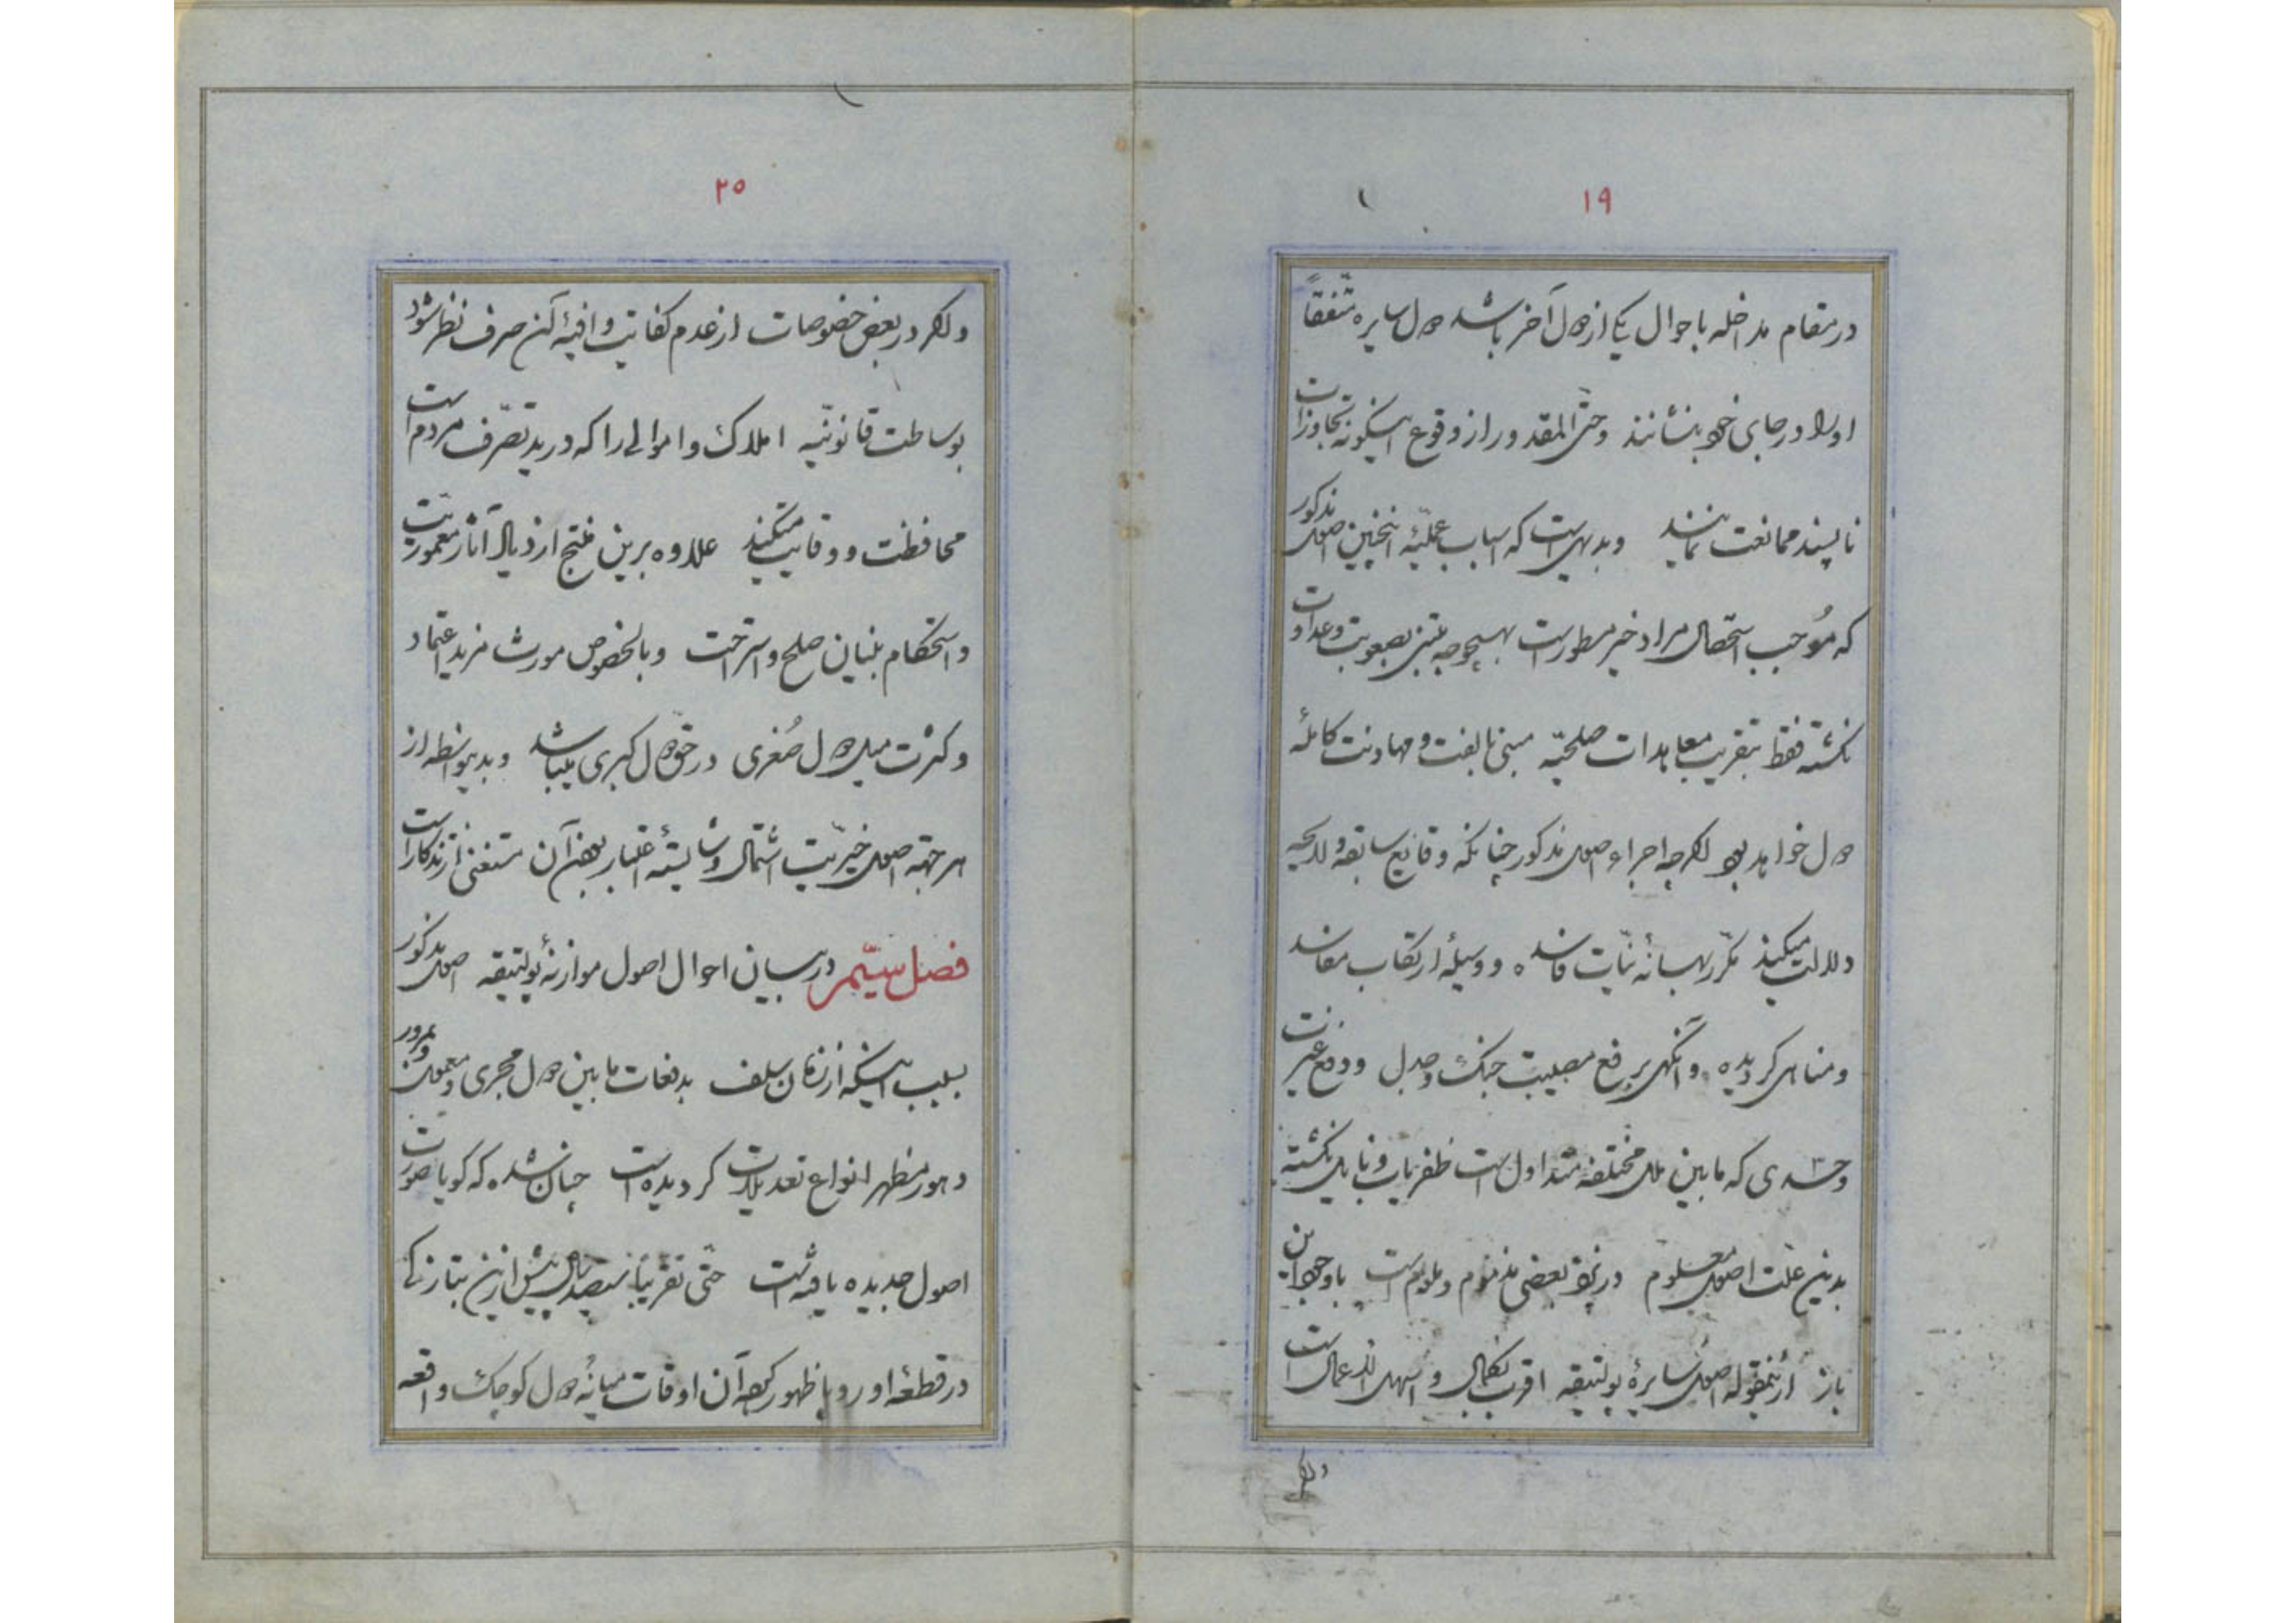 ۱۹
در مقام مداخله باحوال یکی از دول آخر باشد دول سایره متفقاً
اورا در جای خود بنشانند وحتی المقدور از وقوع اینگونه تجاوزات
ناپسند ممانعت نمایند وبدیهی است که اسباب عملیهٔ اینچنین اصول مذکور
که مُوجب استحصال مراد خیر مسطور است بهیچوجه مبتنی بصعوبت وعداوت
نکشته فقط بتقریب معاهدات صلحیّه مبنی بالفت و مهادنت کاملهٔ
دول خواهد بود اکرچه اجراء اصول مذکور چنانکه وقایع سابقه ولاحقه
دلالت میکند مکرّر بهانهٔ نیّات فاسده و وسیلهٔ ارتکاب مفاسد
ومناهی کردیده وانکهی بر رفع مصیبت جنک وجدل ودفع غیرت
وحسدی که مابین ملل مختلفه متداول است ظفریاب ونایل نکشته
بدین علّت اصول معلوم در نزد بعضی مذموم وملوم است باوجود این
باز از مقوله اصول سایرهٔ پولتیقه اقرب بکمال واسهل الاعمال است
واکر
۲۰
واکر در بعض خصوصات از عدم کفایت وافیهٔ آن صرف نظر شود
بوساطت قانونیّه املاک و اموالی را که در ید تصرّف مردم است
محافظت و وقایت میکند علاوه برین منتج ازدیاد آثار معموریت
واستحکام بنیان صلح واستراحت وبالخصوص مورث مزید اعتماد
وکثرت میل دول صُغری در حق دول کبری میباشد وبدینواسطه از
هر جهة اصول خیریّت اشتمال وشایستهٔ اعتبار بودن آن مستغنی از تذکار است
فصل سیّم در بیان احوال اصول موازنهٔ پولتیقه اصول مذکور
بسبب اینکه از زمان سلف بدفعات مابین دول مجری ومعمول وبمرور
دهور مظهر انواع تعدیلات کردیده است چنان شده که کویا صورت
اصول جدیده یافته است حتی تقریباً سیصد سال پیش ازین بتازکی
در قطعهٔ اوروپا ظهور کرد آن اوقات میانهٔ دول کوچک واقعه